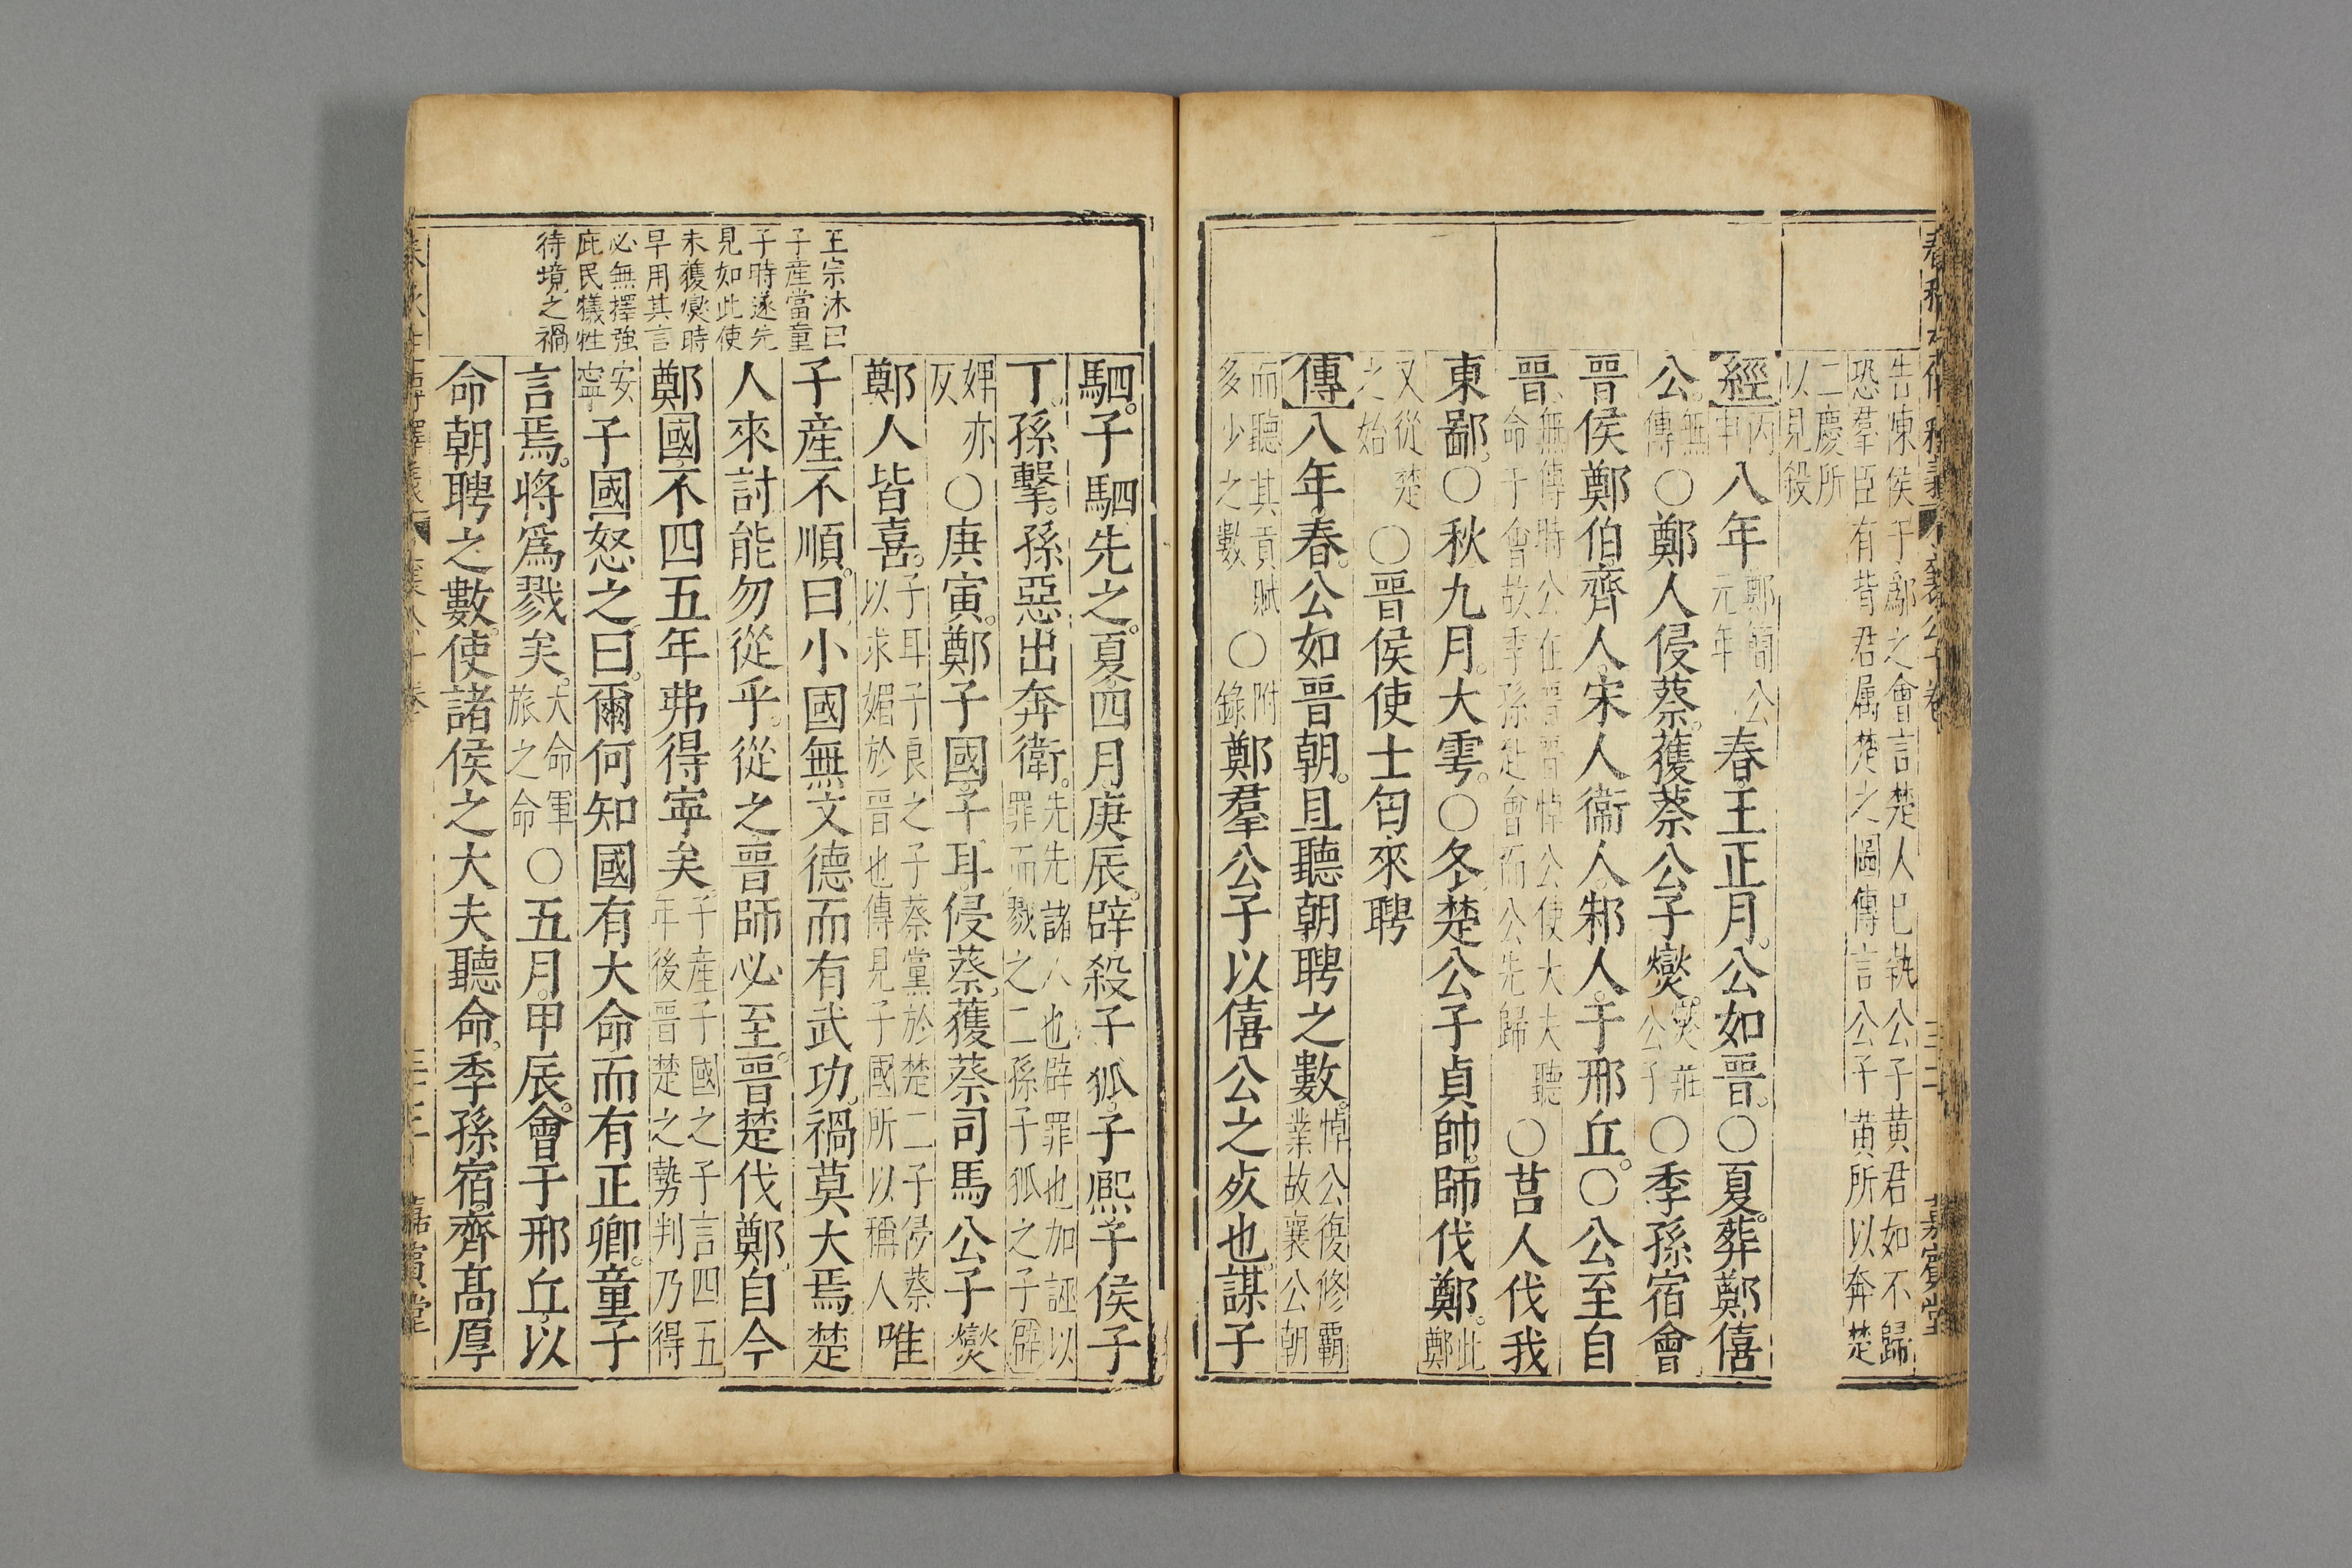 告陳侯于鄬之會言楚人已執公子黃君如不歸
恐羣臣有背君屬楚之圖傳言公子黃所以奔楚
二慶所
以見殺
經
丙
申
八年
鄭簡公
元年
春王正月公如晉○夏葬鄭僖
公
無
傳
○鄭人侵蔡獲蔡公子燮
燮莊
公子
○季孫宿會
晉侯鄭伯齊人宋人衞人邾人于邢丘○公至自
晉
無傳時公在晉晉悼公使大夫聽
命于會故季孫赴會而公先歸
○莒人伐我
東鄙○秋九月大雩○冬楚公子貞帥師伐鄭
此
鄭
又從楚
之始
○晉侯使士匄來聘
傳八年春公如晉朝且聽朝聘之數
悼公復修霸
業故襄公朝
而聽其貢賦
多少之數
○
附
錄
鄭羣公子以僖公之𣦸也謀子
王宗沐曰
子産當童
子時遂先
見如此使
未獲燮時
早用其言
必無擇強
庇民犧牲
待境之禍
駟子駟先之夏四月庚辰辟殺子狐子熈子侯子
丁孫擊孫惡出奔衛
先先諸人也辟罪也加誣以
罪而戮之二孫子狐之子辟
婢亦
反
○庚寅鄭子國子耳侵蔡獲蔡司馬公子燮
鄭人皆喜
子耳子良之子蔡黨於楚二子侵蔡
以求媚於晉也傳見子國所以稱人
唯
子産不順曰小國無文德而有武功禍莫大焉楚
人來討能勿從乎從之晉師必至晉楚伐鄭自今
鄭國不四五年弗得寧矣
子産子國之子言四五
年後晉楚之勢判乃得
安
寧
子國怒之曰爾何知國有大命而有正卿童子
言焉將爲戮矣
大命軍
旅之命
○五月甲辰會于邢丘以
命朝聘之數使諸侯之大夫聽命季孫宿齊高厚
嘉賓堂